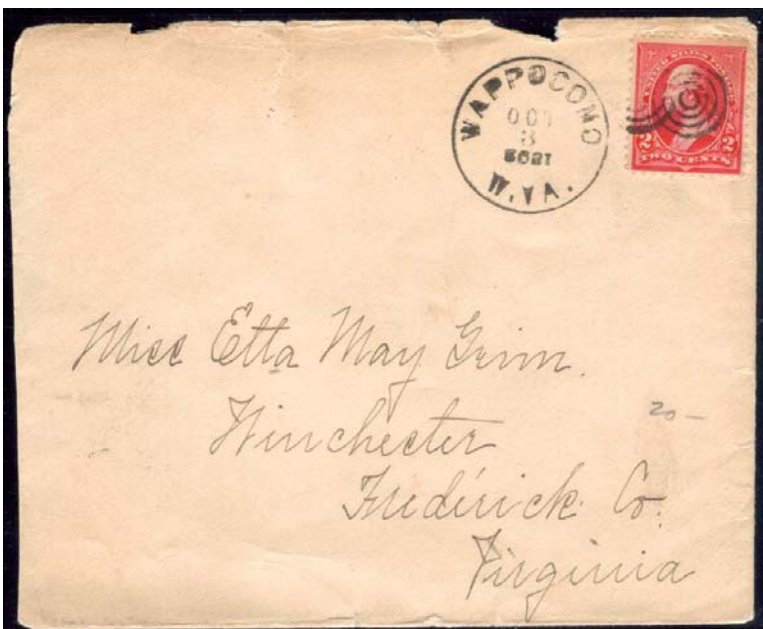 WAPPOCOMO
OCT
3
W. VA.
UNITED STATES POSTAGE
2 2
TWO CENTS
Miss Etta May Grim.
Winchester
Frederick Co.
Virginia
20 —